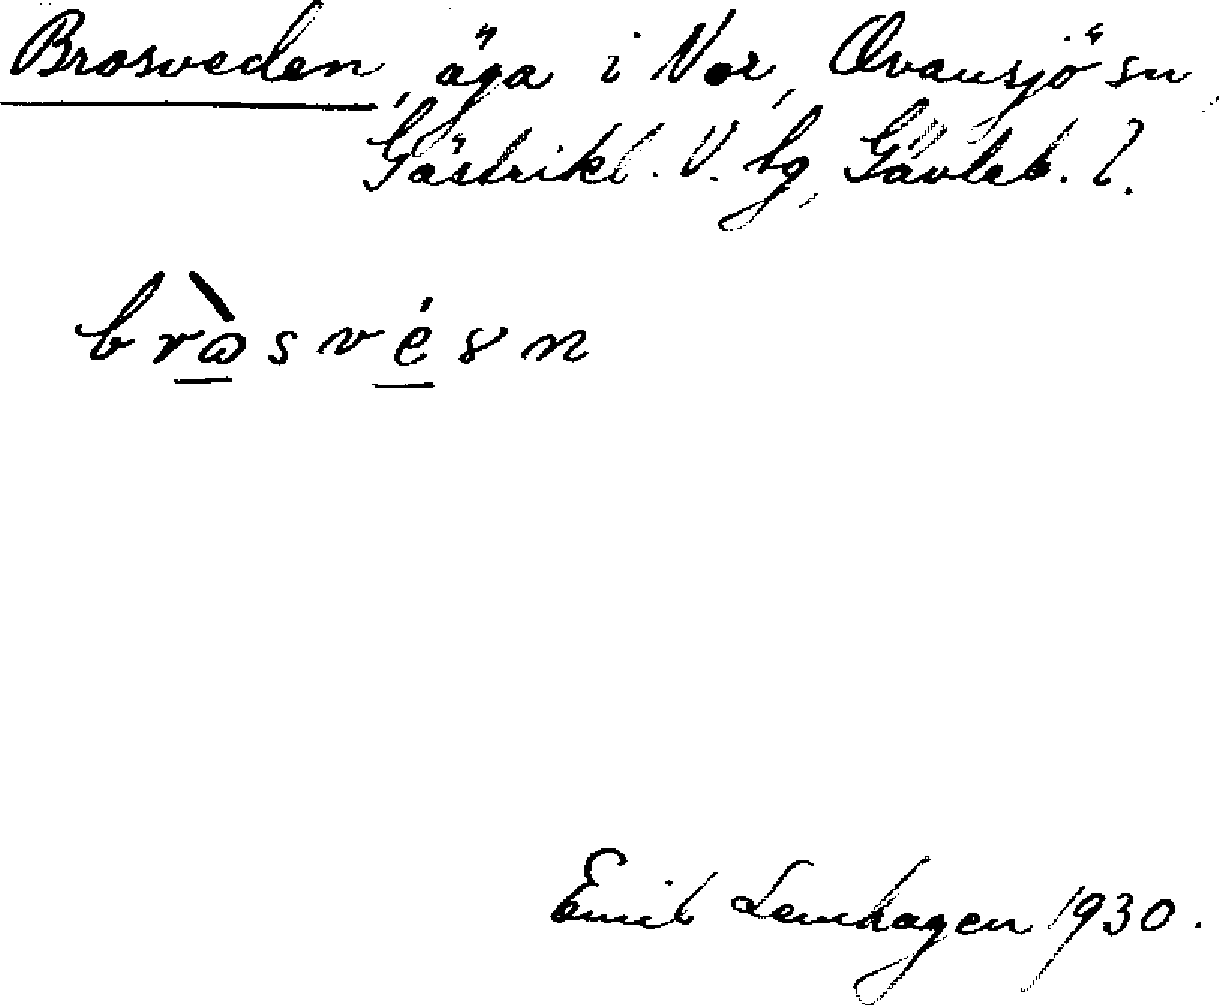 Brosveden, äga i Vor, Ovansjö sn,
Gästrikl. V. hg, Gävleb. l.
bròsvéðn
Emil Lenhagen 1930.